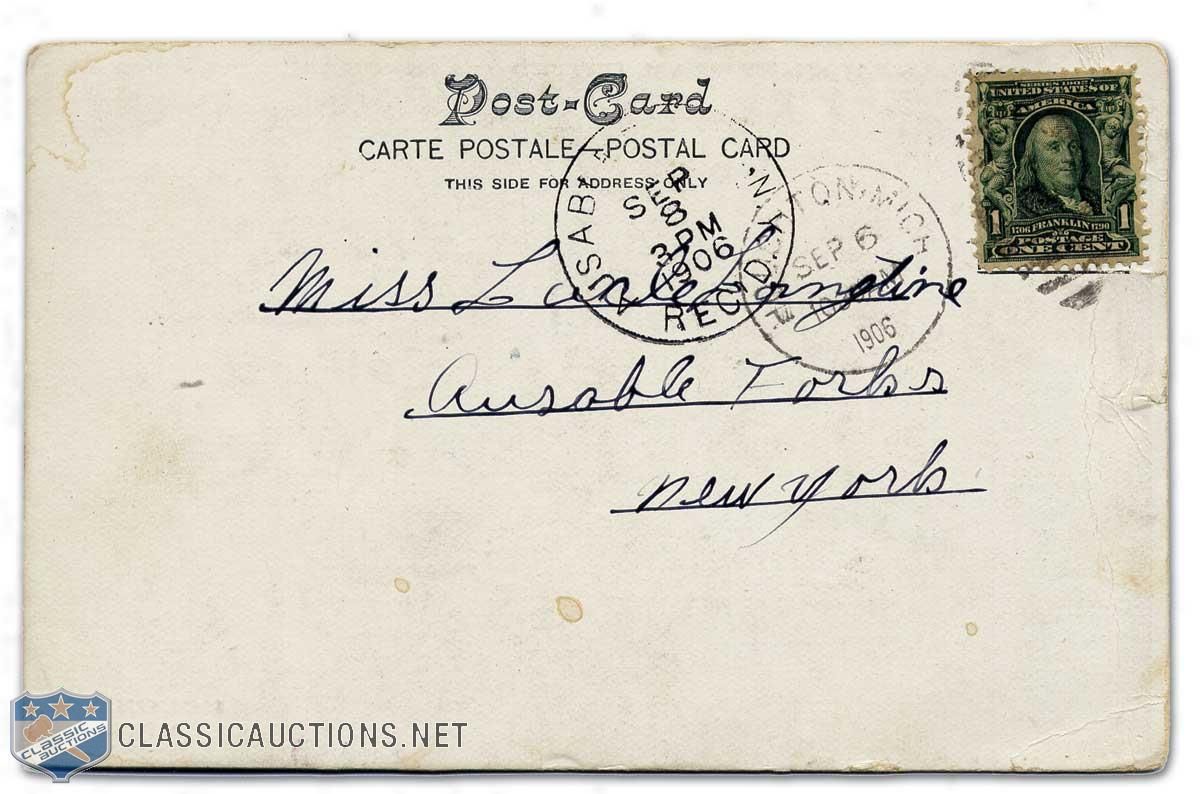 Post-Card
CARTE POSTALE—POSTAL CARD
THIS SIDE FOR ADDRESS ONLY
SERIES 1902
UNITED STATES OF
AMERICA
1 1706 FRANKLIN 1790 1
POSTAGE
ONE CENT
USAB N.Y.
SEP
8
3 PM
1906
REC'D.
TON, MICH
SEP 6
1906
Miss
Ausable Forks
New York
CLASSIC
AUCTIONS
CLASSICAUCTIONS.NET